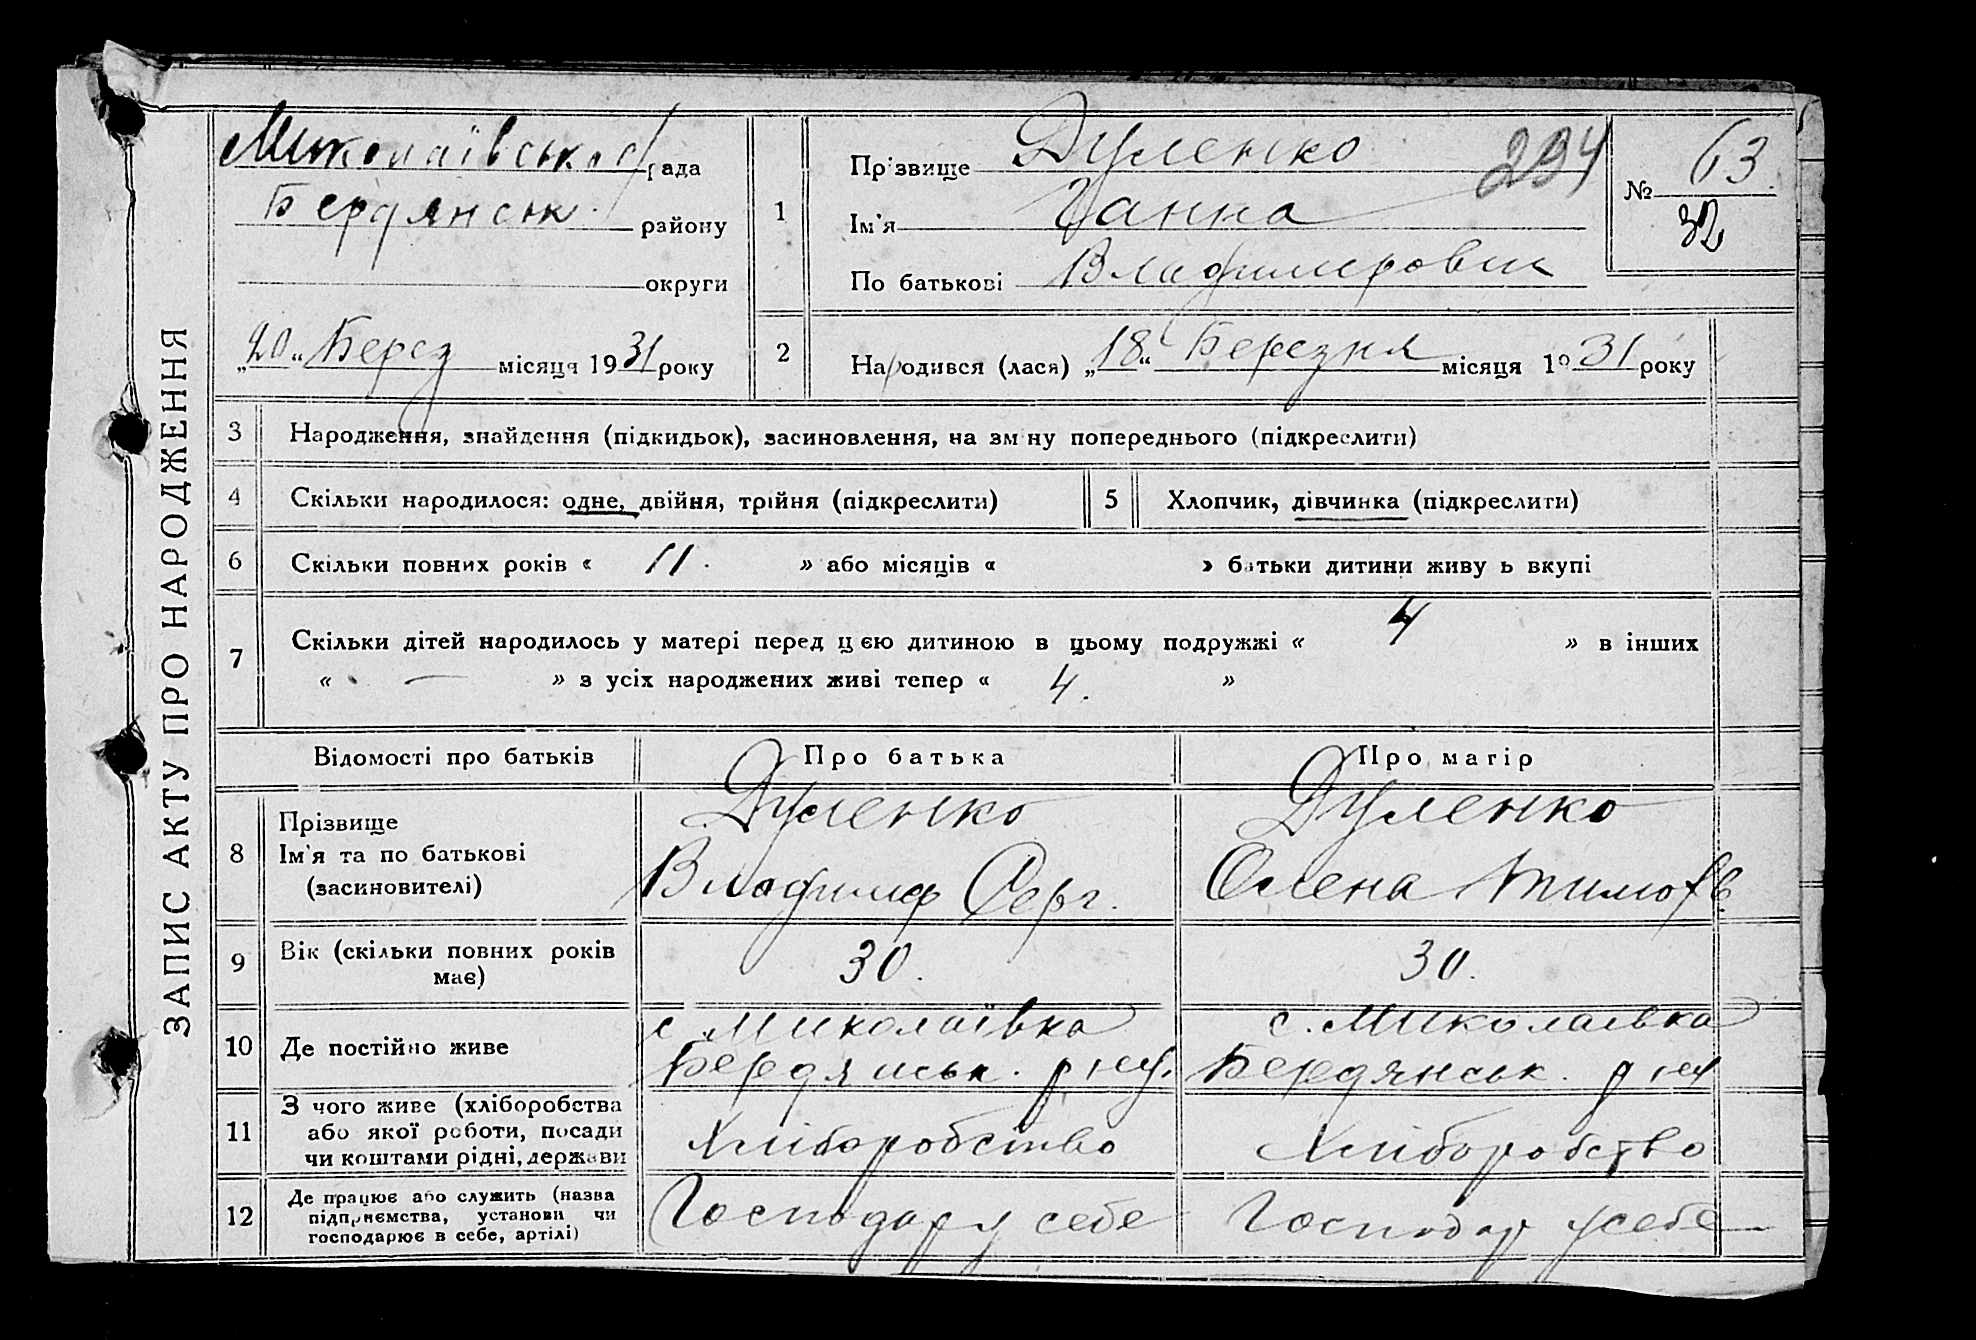 ЗАПИС АКТУ ПРО НАРОДЖЕННЯ
Миколаївськ с/рада
Бердянськ району
округи
„20“ Берез місяця 1931 року
1 Прізвище Дуленко 294
Ім'я Ганна
По батькові Владимеровн
№ 63
32
2 Народився (лася) „18“ Березня місяця 1931 року
3 Народження, знайдення (підкидьок), засиновлення, на зміну попереднього (підкреслити)
4 Скільки народилося: одне, двійня, трійня (підкреслити)
5 Хлопчик, дівчинка (підкреслити)
6 Скільки повних років « 11. » або місяців « » батьки дитини живуть вкупі
7 Скільки дітей народилось у матері перед цією дитиною в цьому подружжі « 4 » в інших
« — » з усіх народжених живі тепер « 4. »
Відомості про батьків Про батька Про матір
8 Прізвище
Ім'я та по батькові
(засиновителі)
Дуленко
Владимер Серг.
Дуленко
Олена Тимофів
9 Вік (скільки повних років
має)
30. 30.
10 Де постійно живе
с. Миколаївка
Бердянськ. р-ну.
с. Миколаівка
Бердянськ. р-ну
11 З чого живе (хліборобства
або якої роботи, посади
чи коштами рідні, держави
Хліборобство Хліборобство
12 Де працює або служить (назва
підприємства, установи чи
господарює в себе, артілі)
Господарує у себе Господар у себе